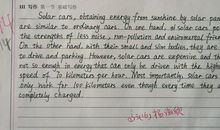 III 写作 第一节 基础写作
Solar cars, obtaining energy from sunshine by solar pa
are similar to ordinary cars. On one hand, solar cars po
the strengths of less noise, non-pollution and environmental frien
On the other hand, with their small and slim bodies, they are
to drive and parking. However, solar cars are expensive and th
not so enough in energy that can only be driven with the high
speed of 70 kilometers per hour. Most importantly, solar cars
only work for 100 kilometers even though every time they a
completely charged.